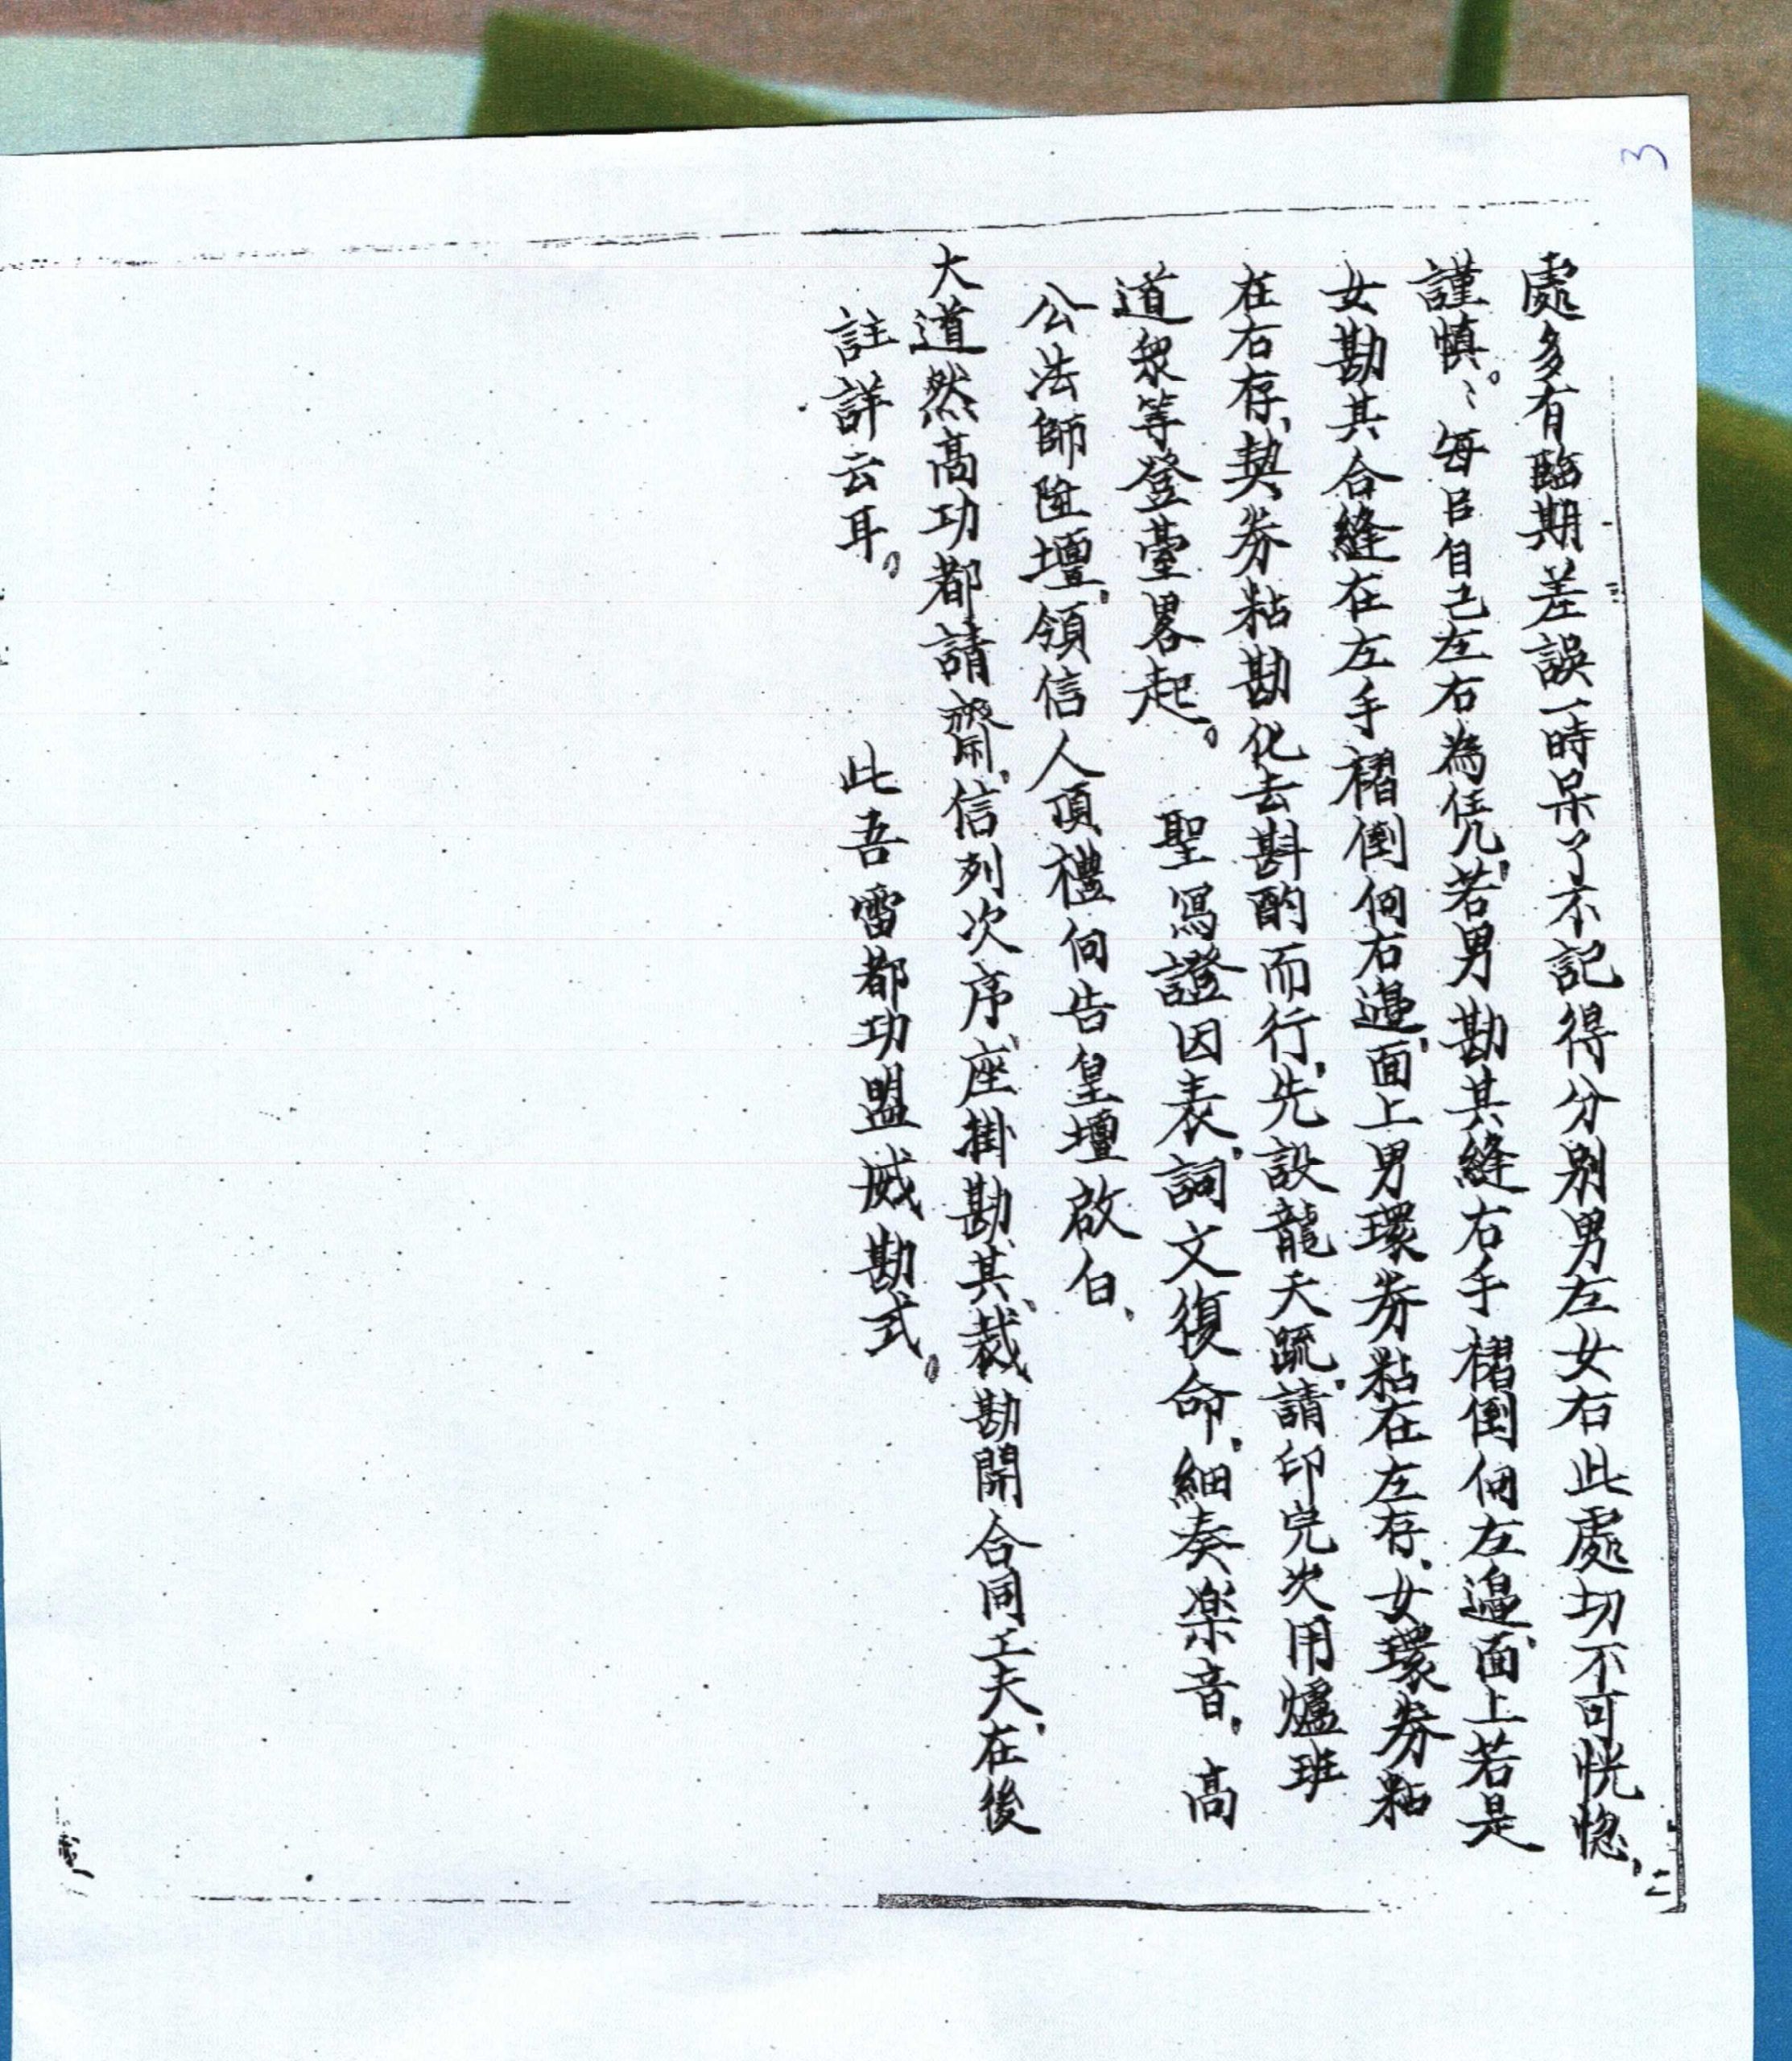 3
處多有臨期差誤一時呆了不記得分別男左女右此處切不可恍惚、
謹慎。〻每日自己左右為凭凡、若男勘其縫右手摺倒向左邊、面上若是
女勘其合縫在左手摺倒向右邊、面上男環券粘在左存、女環券粘
在右存、契券粘勘化去斟酌而行、先設龍天疏、請印完次用爐班
道眾等登臺畧起。 聖寫證因表、詞文復命、細奏樂音、高
公法師陞壇、領信人頂禮向告皇壇啟白、
大道然高功都請齋、信列次序、座掛勘其、裁勘開合同工夫、在後
註詳云耳。 此吾雷都功盟威勘式。